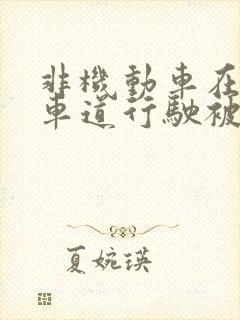 非機動車在
車道行駛被
夏婉瑛